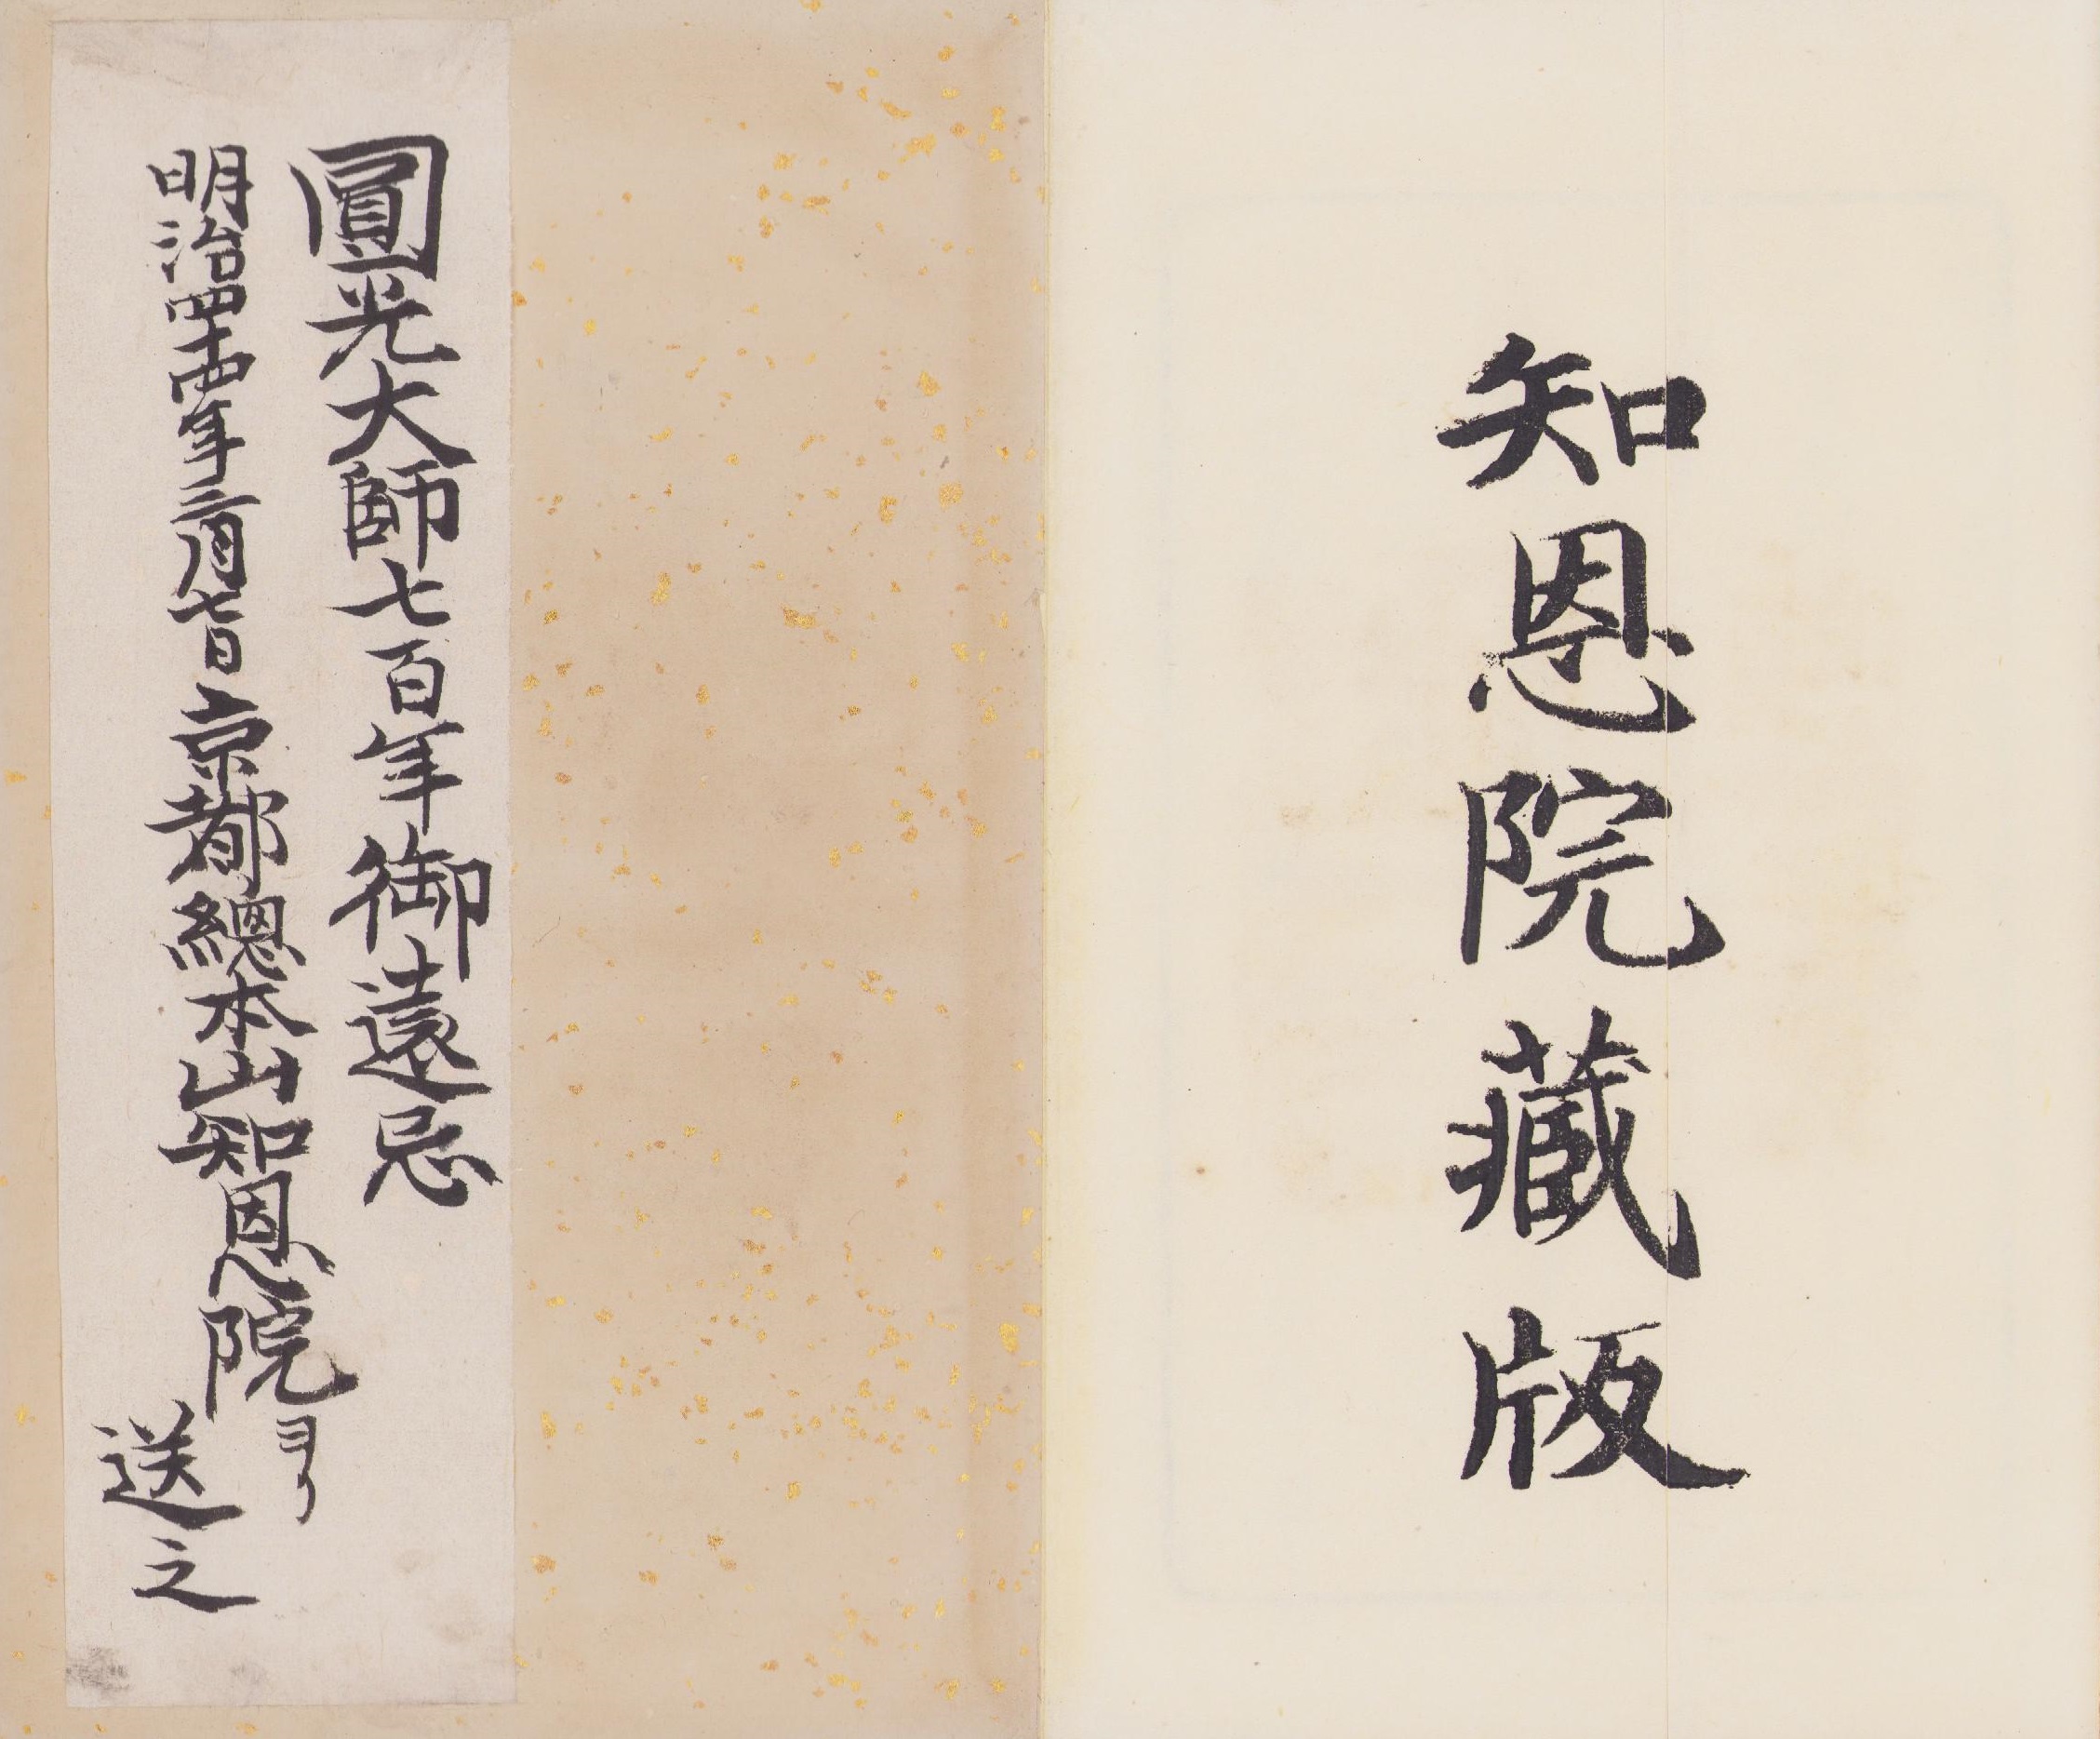 知恩院藏版
圓光大師七百年御遠忌
明治四十四年三月七日京都總本山知恩院ヨリ
送之